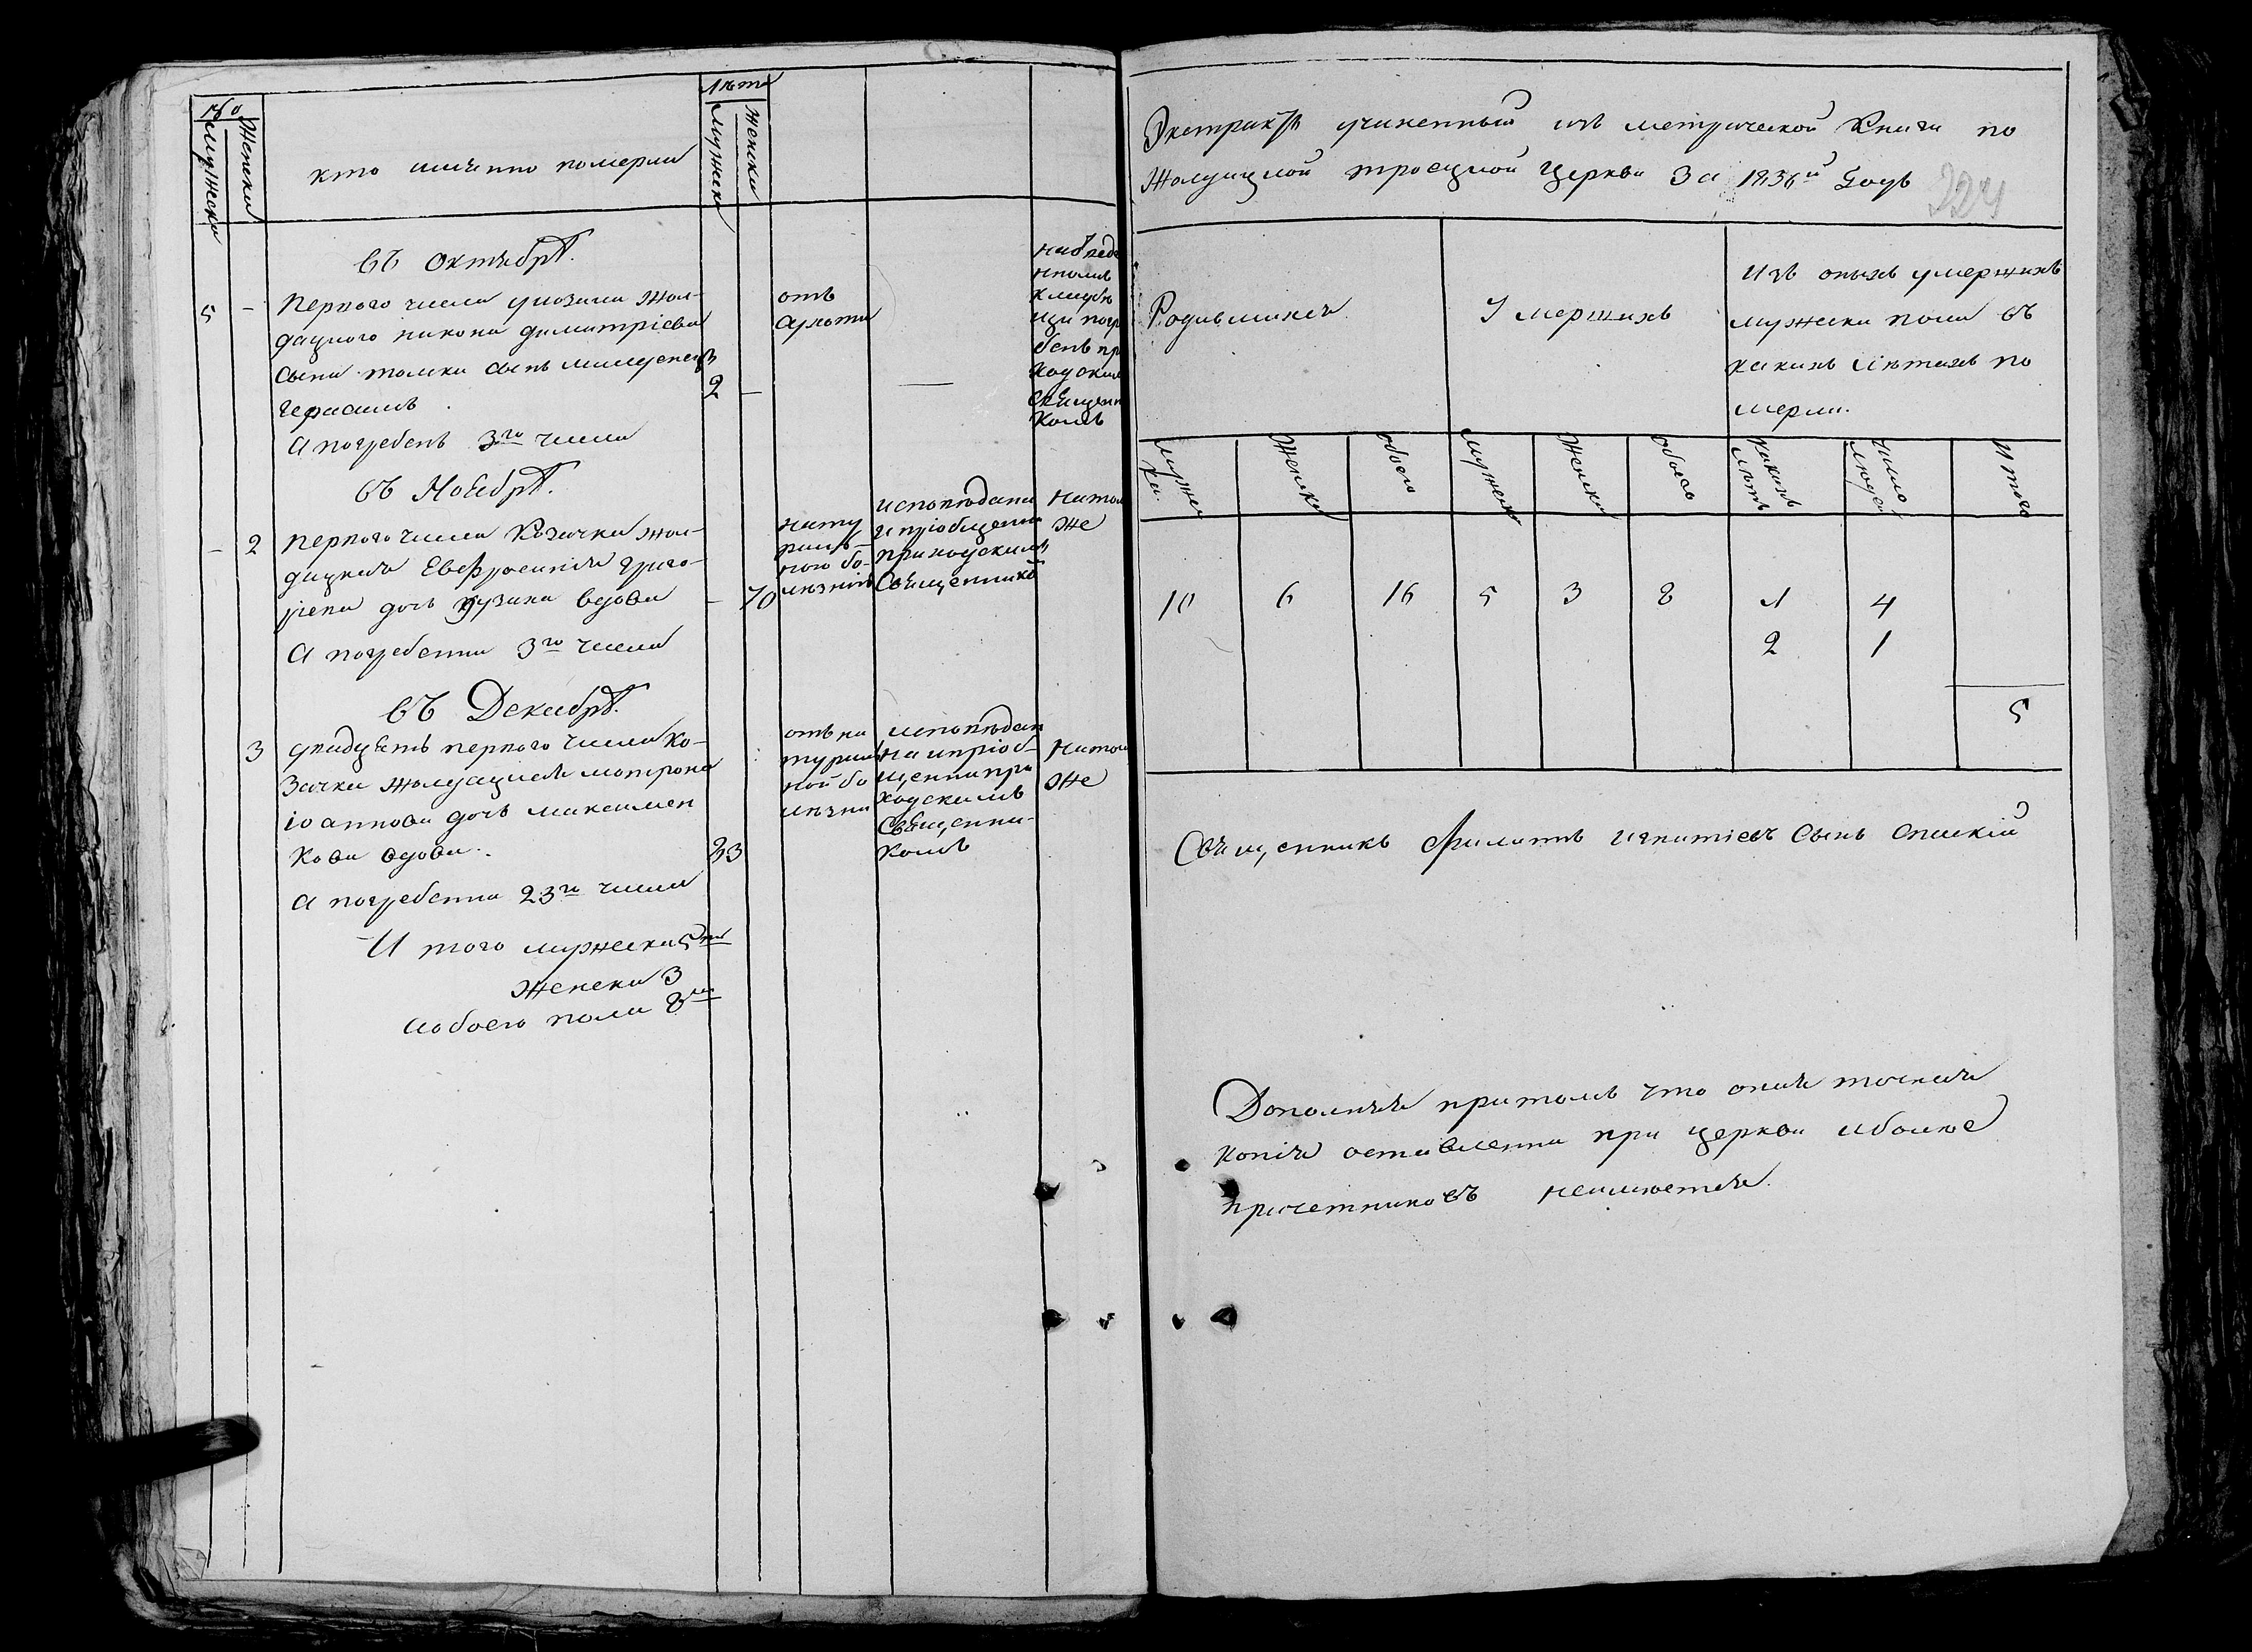 №
Мужеска
Женска
кто имянно померли
Лѣта
Мужеска
Женска
въ Октябрѣ.
5 – Первого числа умозила Жол-
дацкого никона димитріева
сына сынъ младенецъ
Герасимъ 2 –
А погребенъ 3го числа
отъ
сухоты
—
на
кладби
щи погр
бенъ пр
ходским
Священ
комъ
въ Ноябрѣ.
– 2 первого числа Козачка жол-
дацкая Евфросинія григо-
ріева дочь вдова – 70
А погребенна 3го числа
нату
раль-
ною бо-
лѣзнію
исповѣдана
и пріобщенна
приходскимъ
Священнико
на том
же
въ Декабрѣ.
3 двадцеть первого числа Ко-
зачка жолдацкая мотрона
іоаннова дочь максимен
кова вдова. 33
А погребенна 23го числа
отъ на
турал
ной бо
лѣзни
исповѣдан
на и пріоб-
щенна при
ходскимъ
Священни-
комъ
на том
же
И того мужеска 5ть
Женска 3
А обоего пола 8мь
Экстрактъ учиненный изъ метрической Книги по
Жолдацкой троецкой Церкви За 1836й Годъ
224
Родившихся
Умершихъ
Изъ оныхъ умершихъ
мужеска пола въ
какихъ лѣтахъ по
мерли.
мужес
ка.
Женска
обоего
мужеска
Женска
обоего
какихъ
лѣтъ
число
людей
Итого
10 6 16 5 3 8 1 4
2 1
5
Священникъ Филатъ игнатіевъ Сынъ
Дополняя притомъ что оная точная
копія оставленна при церкви и болѣе
причетниковъ неимѣется.